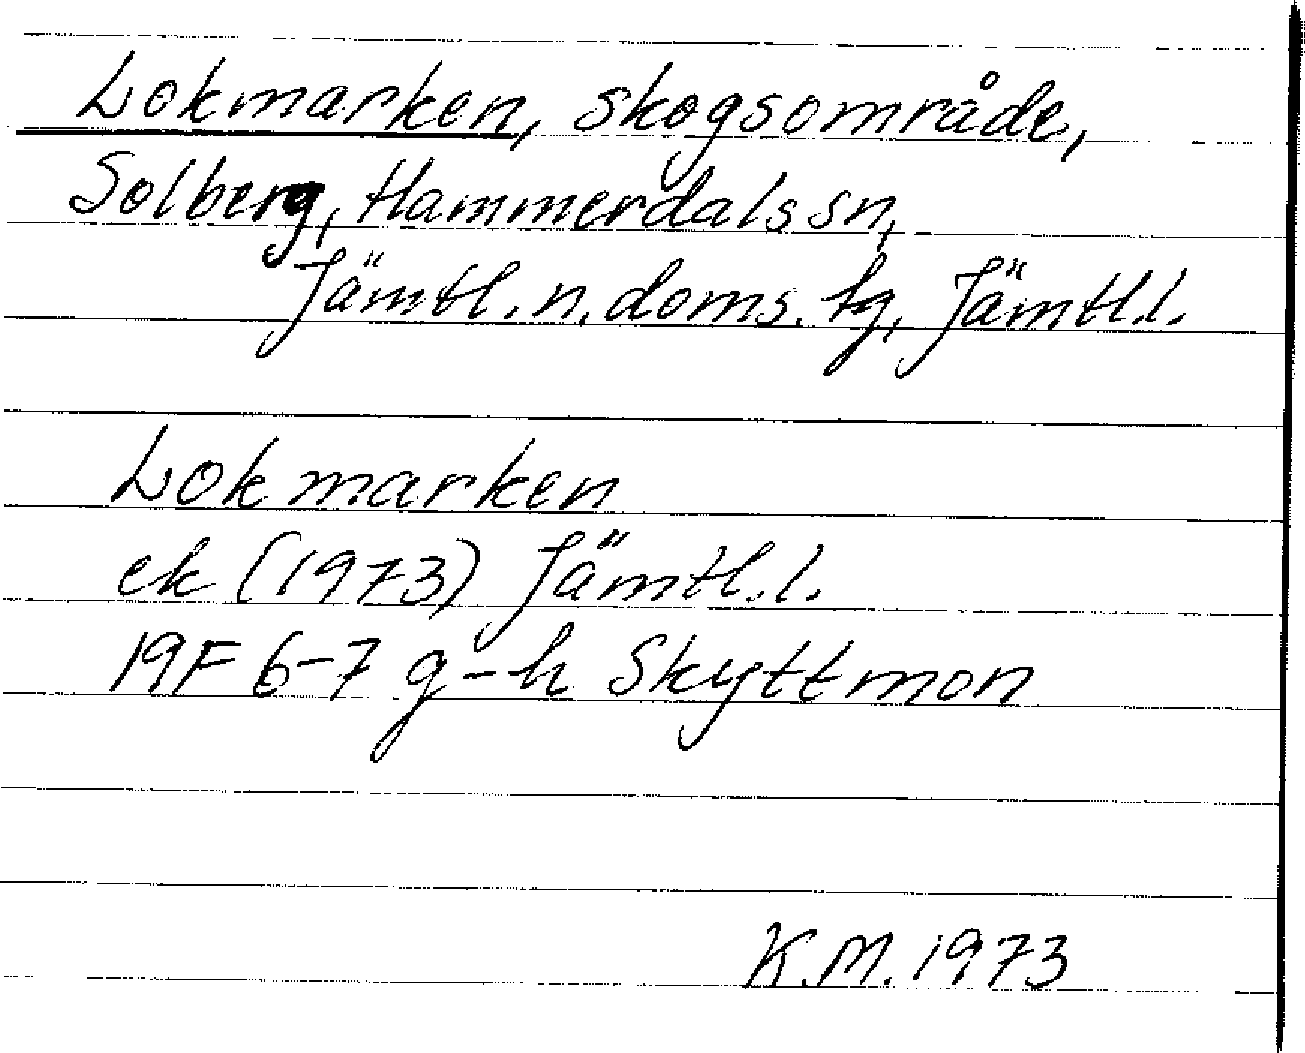 Lokmarken, skogsområde,
Solberg, Hammerdals sn,
Jämtl. n. doms. tg, Jämtl.l.
Lokmarken
ek (1973) Jämtl.l.
19F 6-7 g-h Skyttmon
K.M. 1973